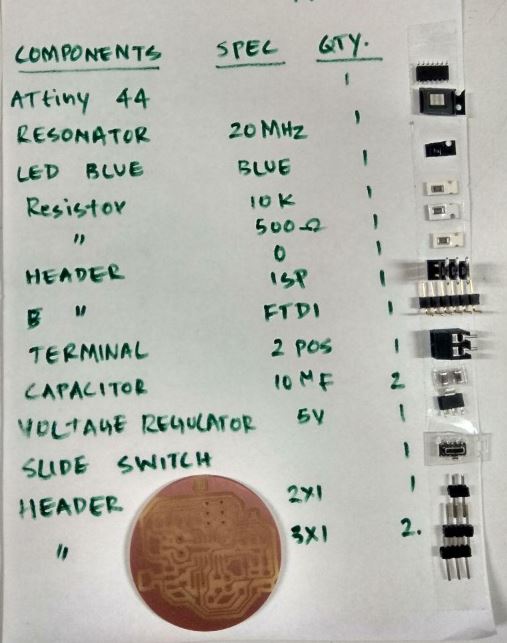 COMPONENTS SPEC QTY.
ATtiny 44 1
RESONATOR 20MHz 1
LED BLUE BLUE 1
Resistor 10K 1
" 500Ω 1
0 1
HEADER ISP 1
" FTDI 1
TERMINAL 2 POS 1
CAPACITOR 10 MF 2
VOLTAGE REGULATOR 5V 1
SLIDE SWITCH 1
HEADER 2X1 1
" 3X1 2.